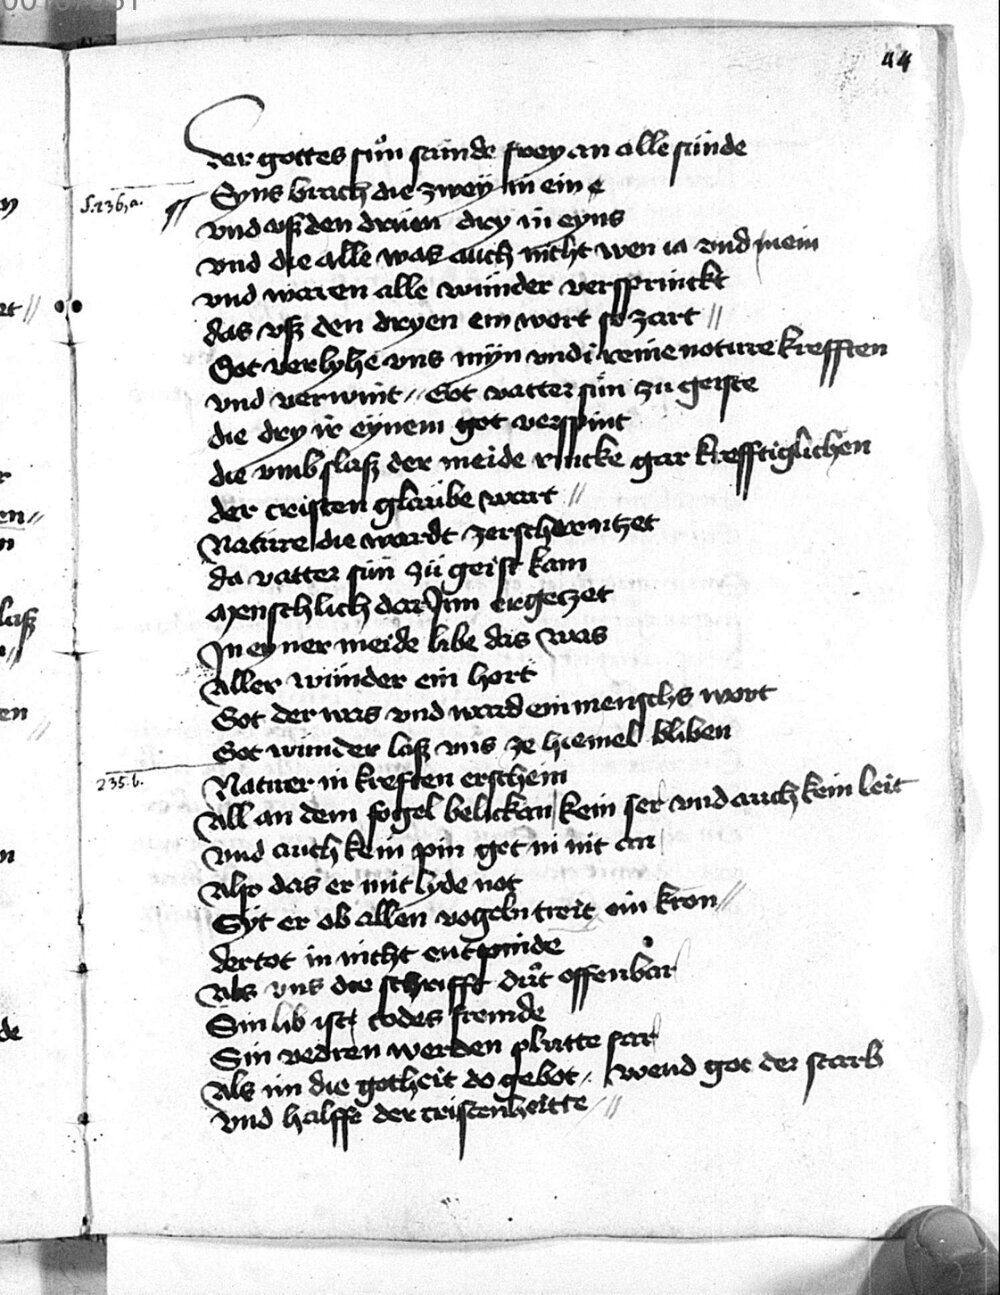 44
der gottes sůn stunde frey an alle sünde
S. 236,a.
Syns brach die zwey in ein e
vnd vß den druen dry in eyns
vnd die alle was auch nicht wen ia vnd nein
vnd waren alle wunder versprinckt
das vß den dryen ein wort so zart //
Got verlyhe vns myn vnd reine nature krefften
vnd verwint // Got vatter sün zu geiste
die dry in eynem got verspint
die vmb slaß der meide rincke gar krefftiglichen
der cristen glaube wart //
Nature die wardt zerschrentzet
da vatter sün zü geist kam
menschlich dar Inn ergetzet
In eyner meide libe das was
Aller wunder ein hort
Got der was vnd ward ein menschs wort
Got wunder laß vns ze hiemel bliben
235.b.
Natuer in kreften erschein
All an dem fogel belickan kein ser vnd auch kein leit
vnd auch kein pin get in nit an
Also das er nit lyde not
Syt er ob allen vogeln treit ein kron //
der tot in nicht entpinde
Als vns die schrifft důt offenbar
Sin lib ist todes fremde
Sin vedren werden plutte far
Als im die gotheit do gebot / wend got der starb
vnd halffe der cristenheitte //